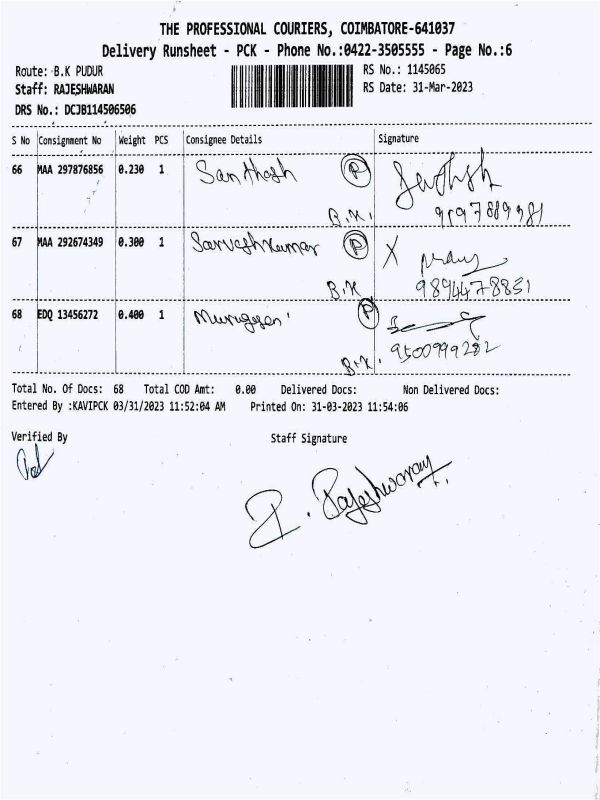 THE PROFESSIONAL COURIERS, COIMBATORE-641037
Delivery Runsheet - PCK - Phone No.:0422-3505555 - Page No.:6
Route: B.K PUDUR RS No.: 1145065
Staff: RAJESHWARAN RS Date: 31-Mar-2023
DRS No.: DCJB114506506
S No Consignment No Weight PCS Consignee Details Signature
66 MAA 297876856 0.230 1 Santhosh P
B.K.
67 MAA 292674349 0.300 1 Sarveshkumar P X
B.K 9894478831
68 EDQ 13456272 0.400 1 Murugesan P
B.K. 9500999282
Total No. Of Docs: 68 Total COD Amt: 0.00 Delivered Docs: Non Delivered Docs:
Entered By :KAVIPCK 03/31/2023 11:52:04 AM Printed On: 31-03-2023 11:54:06
Verified By Staff Signature
Rajeshwaran